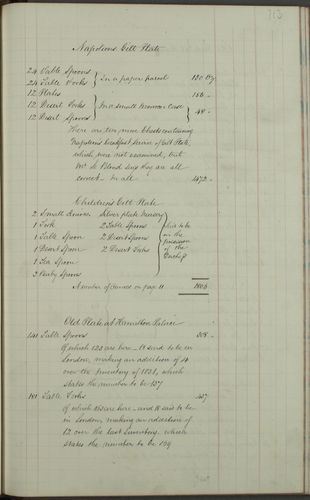 713
Napoleons Gilt Plate
24 Table Spoons
24 Table Forks } In a paper parcel 180 oz
12 Plates 186 -
12 Desert Forks } In a small Brown Case 48 -
12 Desert Spoons
There are two more Chests containing
Napoleon's breakfast Service of Gilt Plate,
which were not examined, but
Mr. Le Blond says they are all
correct. In all 1472 -
Childrens Gilt Plate
2 Small Knives Silver plate Nursery
1 Fork 2 Table Spoons said to be
1 Table Spoon 2 Desert Spoons in the
1 Desert Spoon 2 Desert Forks possession
1 Tea Spoon of the
3 Baby Spoons Duchess
Number of Ounces on page 11 1806
Old Plate at Hamilton Palace
141 Table Spoons 308 -
Of which 123 are here - It said to be in
London, making an addition of 14
over the Inventory of 1831, which
states the number to be 127
181 Table Forks
Of which are here - and It said to be
in London, making an addition of
12 over the last Inventory, which
states the number to be 169